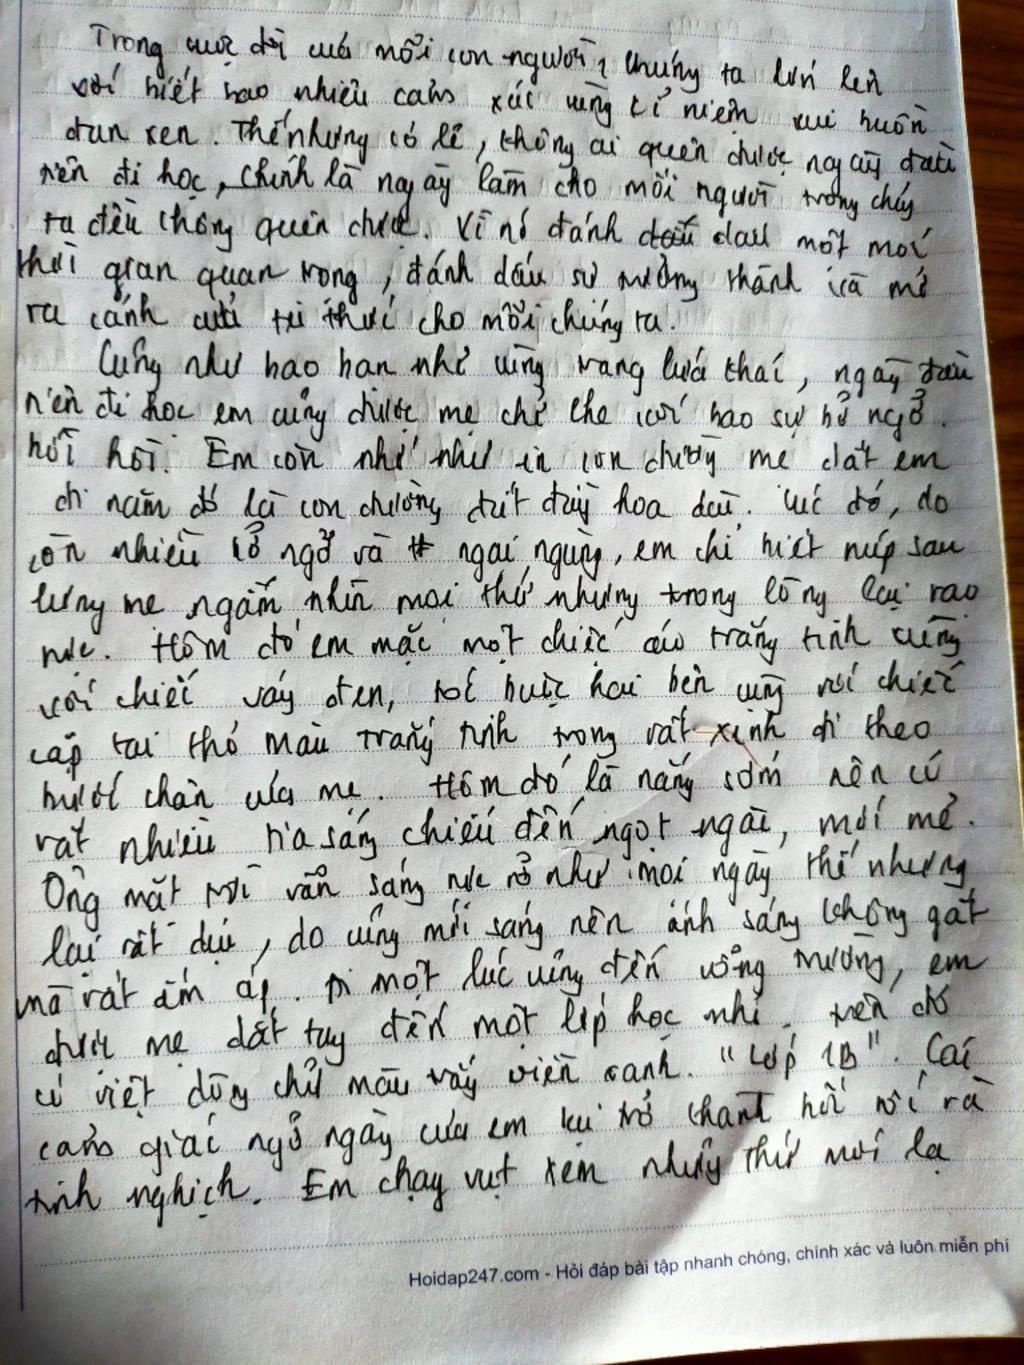 Trong cuộc đời của mỗi con người, chúng ta lớn lên
với biết bao nhiêu cảm xúc cùng kỉ niệm vui buồn
đan xen. Thế nhưng có lẽ, không ai quên được ngày đầu
tiên đi học, chính là ngày làm cho mỗi người trong chúng
ta đều không quên được. Vì nó đánh dấu một mốc
thời gian quan trọng, đánh dấu sự trưởng thành và mở
ra cánh cửa tri thức cho mỗi chúng ta.
Cũng như bao bạn nhỏ cùng trang lứa khác, ngày đầu
tiên đi học em cũng được mẹ chở che với bao sự bỡ ngỡ.
hồi hồi. Em còn nhớ như in con đường mẹ dắt em
đi năm đó là con đường đất đầy hoa dại. lúc đó, do
còn nhiều bỡ ngỡ và ngại ngùng, em chỉ biết núp sau
lưng mẹ ngắm nhìn mọi thứ nhưng trong lòng lại rạo
rực. Hôm đó em mặc một chiếc áo trắng tinh cùng
với chiếc váy đen, tóc buộc hai bên cùng với chiếc
cặp tai thỏ màu trắng tinh trong rất xinh đi theo
bước chân của mẹ. Hôm đó là nắng sớm nên có
rất nhiều tia sáng chiếu đến ngọt ngào, mới mẻ.
Ông mặt trời vẫn sáng rực rỡ như mọi ngày thế nhưng
lại rất dịu, do cũng mới sáng nên ánh sáng không gắt
mà rất ấm áp. Đi một lúc cũng đến cổng trường, em
được mẹ dắt tay đến một lớp học nhỏ. trên đó
có viết dòng chữ màu vàng viền xanh. "Lớp 1B". Cái
cảm giác ngỡ ngàng của em lại trở thành hồi rồi và
tinh nghịch. Em chạy vụt xem những thứ mới lạ
Hoidap247.com - Hỏi đáp bài tập nhanh chóng, chính xác và luôn miễn phí